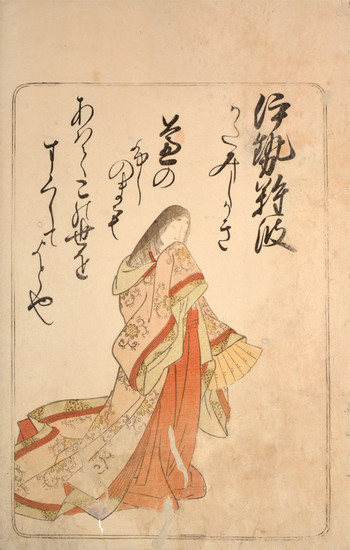 伊勢 難波
かたみしかき
芦の
ふしのまも
あはてこの世を
すくしてよとや